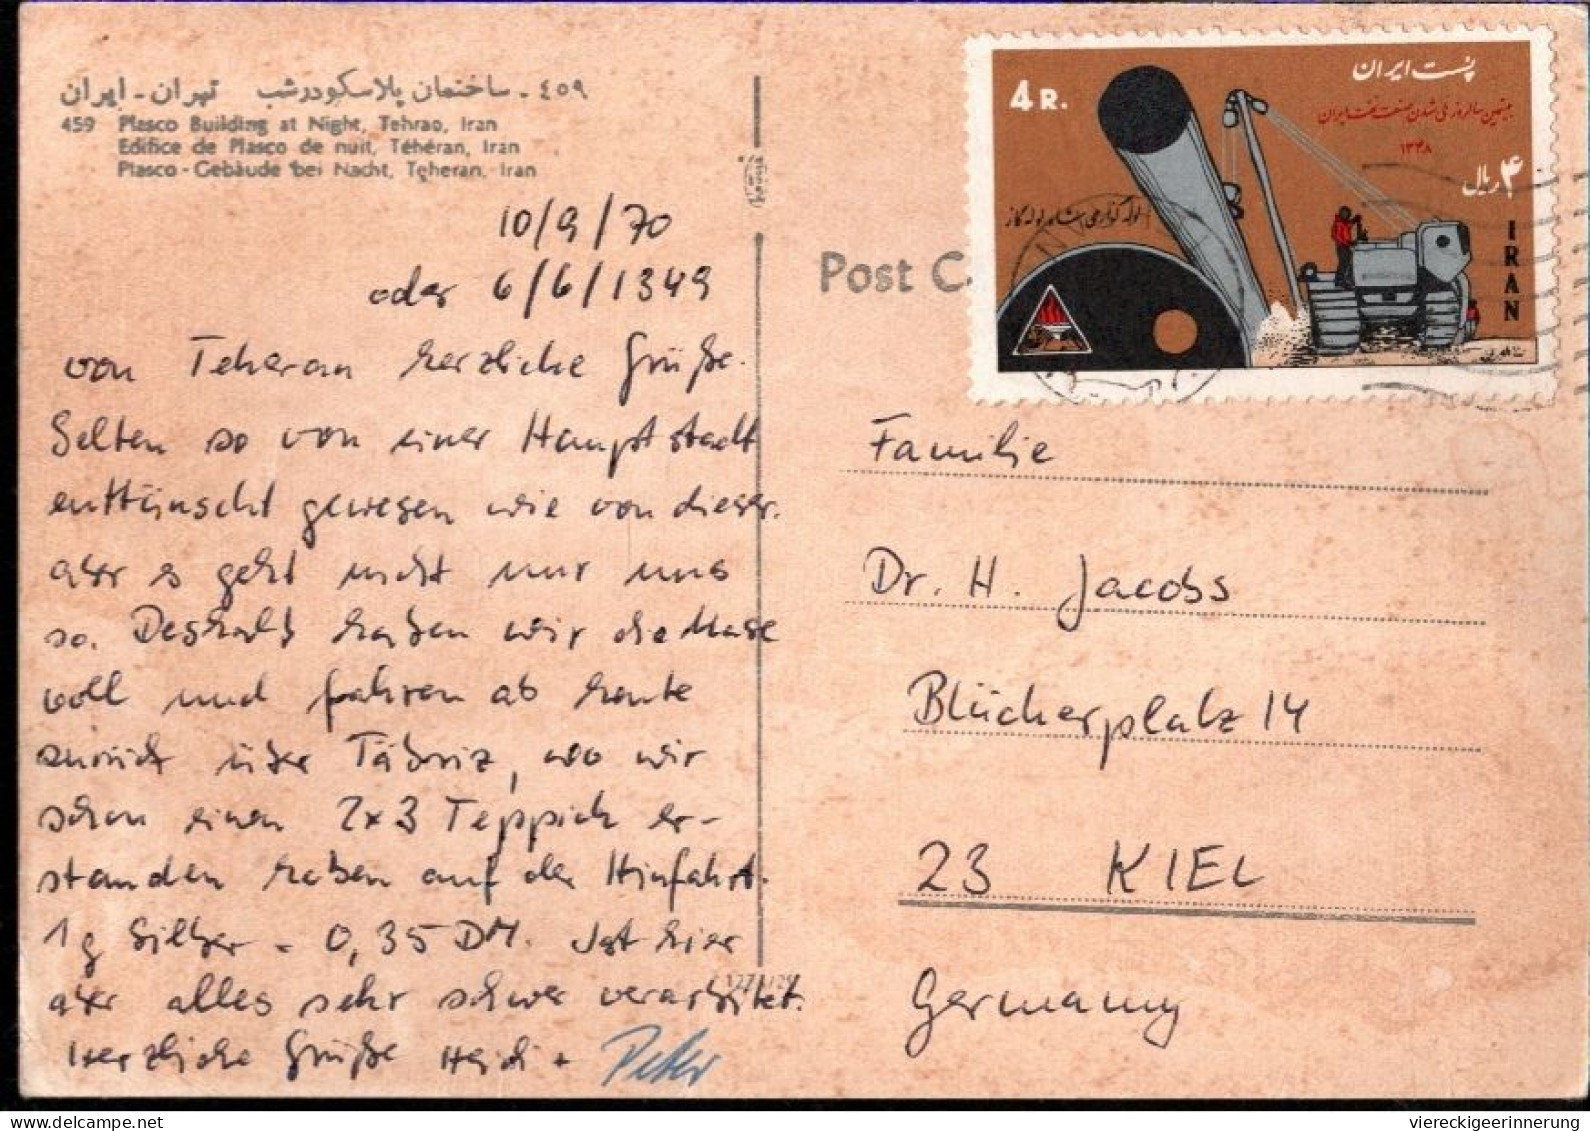 ٤٥٩ - ساختمان پلاسکو در شب    تهران - ایران
459 Plasco Building at Night, Tehran, Iran
Edifice de Plasco de nuit, Téhéran, Iran
Plasco - Gebäude bei Nacht, Teheran, Iran
10/9/70
oder 6/6/1349
von Teheran herzliche Grüße.
Selten so von einer Hauptstadt
enttäuscht gewesen wie von dieser.
aber es geht nicht nur uns
so. Deshalb haben wir die Nase
voll und fahren ab heute
zurück über Täbriz, wo wir
schon einen 2x3 Teppich er-
standen haben auf der Hinfahrt.
1g Silber = 0,35 DM. Ist hier
aber alles sehr schwer verarbeitet.
Herzliche Grüße Heidi + Peter
Post C
4 R.
پست ایران
بیستمین سالروز ملی شدن صنعت نفت ایران
۱۳۴۸
۴ ریال
لوله گذاری شاه لوله گاز
IRAN
Familie
Dr. H. Jacobs
Blücherplatz 14
23 KIEL
Germany
viereckigeerinnerung